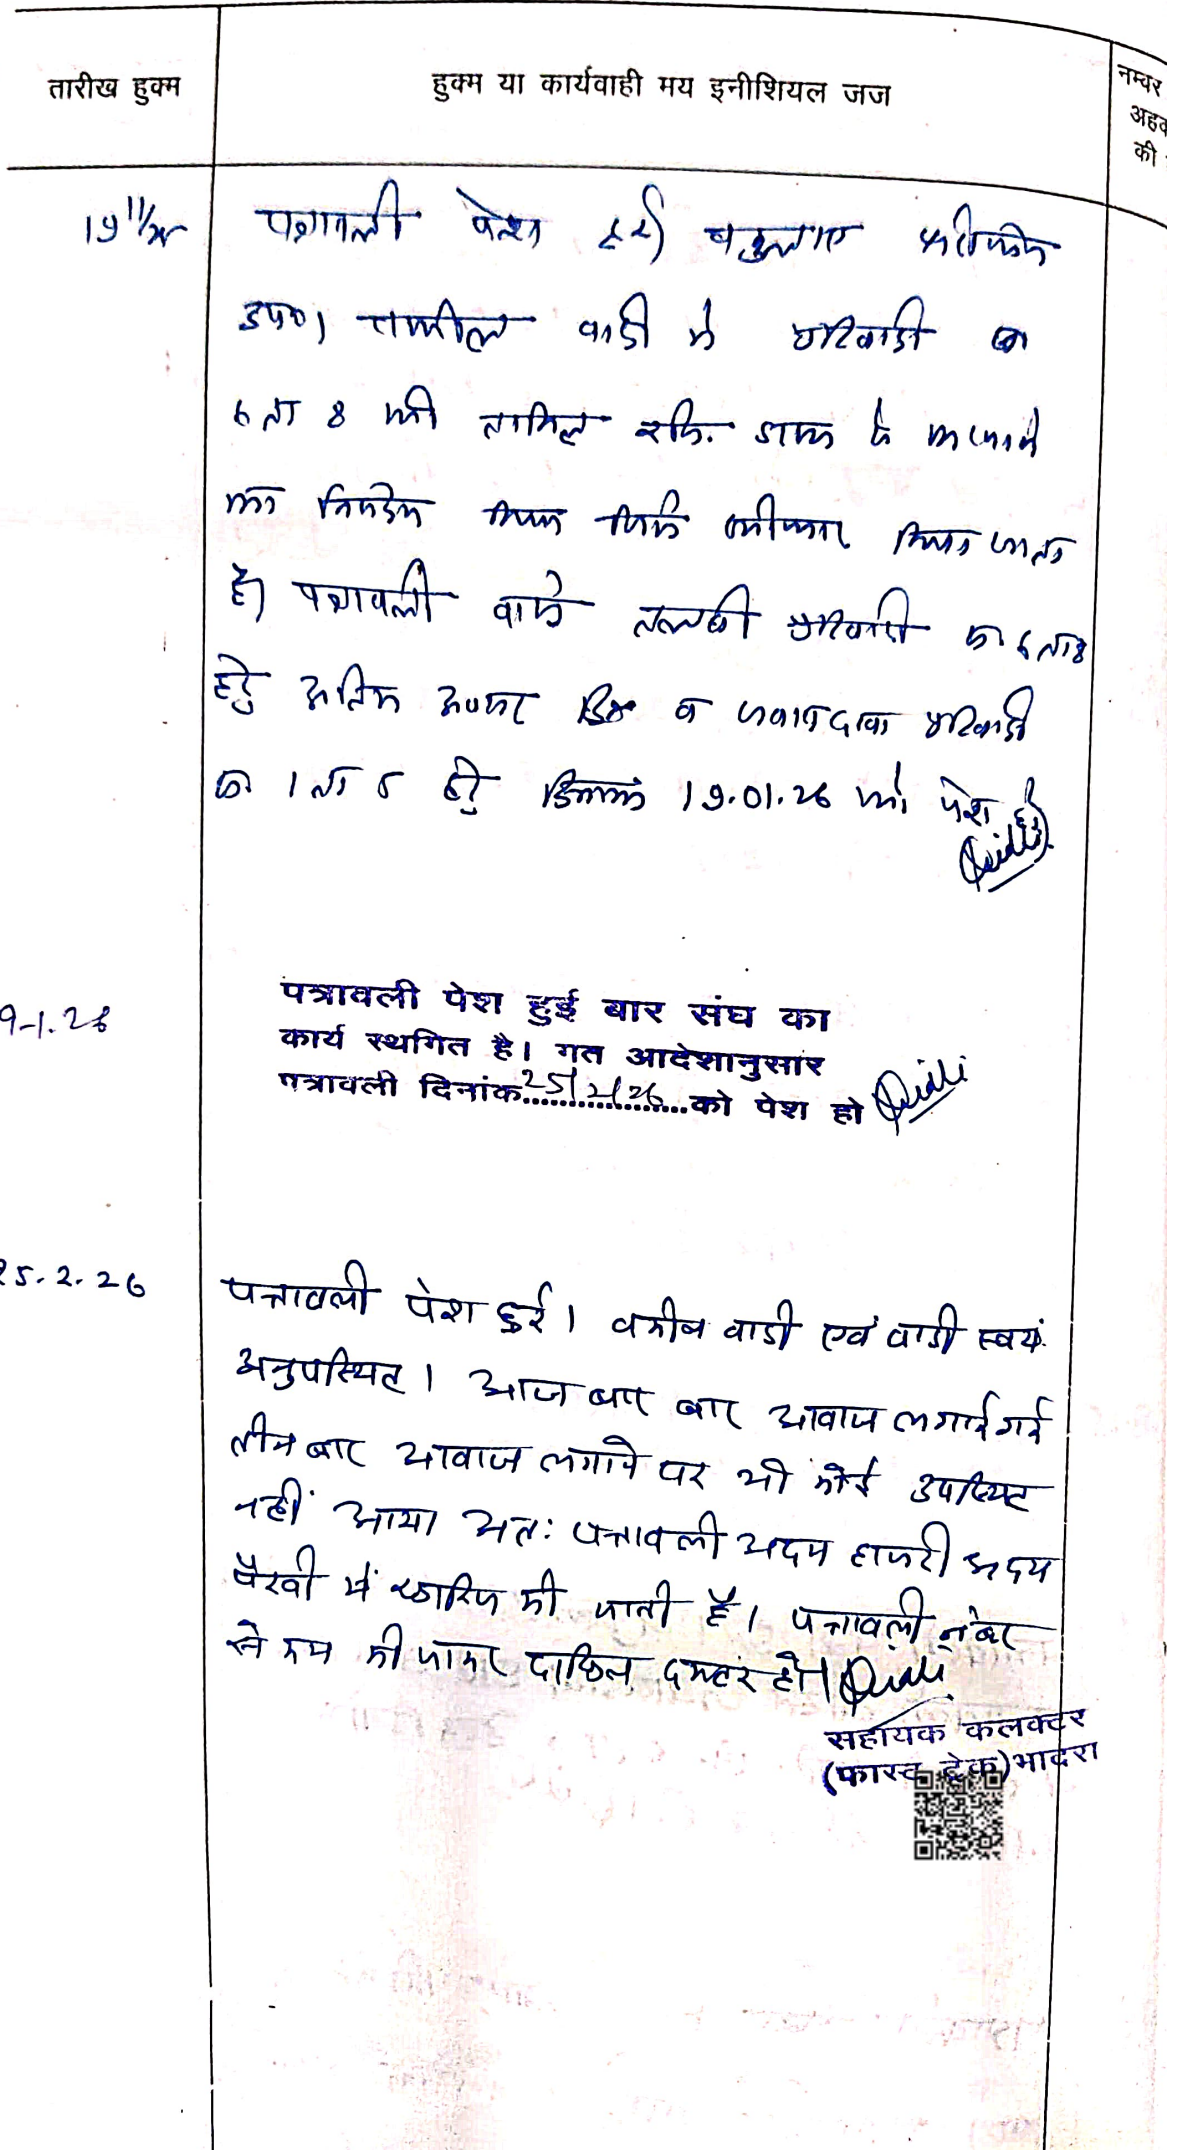 तारीख हुक्म
हुक्म या कार्यवाही मय इनीशियल जज
नम्वर
अहव
की
19 11/
पत्रावली पेश हुई।
उप०। वकील वादी ने प्रतिवादी क्र
6 ता 8 की तामिल रजि. डाक के माध्यम से
का निवेदन किया जिसे स्वीकार किया जाता
है। पत्रावली वास्ते तलबी प्रतिवादी क्र 6 ता 8
हेतु अंतिम अवसर व जवाबदावा प्रतिवादी
क्र 1 ता 5 हेतु दिनांक 19.01.26 को पेश हो।
9-1.26
पत्रावली पेश हुई बार संघ का
कार्य स्थगित है। गत आदेशानुसार
पत्रावली दिनांक 25/2/26 को पेश हो
25.2.26
पत्रावली पेश हुई। वकील वादी एवं वादी स्वयं
अनुपस्थित। आज बार बार आवाज लगाई गई
तीन बार आवाज लगाने पर भी कोई उपस्थित
नहीं आया अतः पत्रावली अदम हाजरी अदम
पैरवी में खारिज की जाती है। पत्रावली नंबर
से कम की जाकर दाखिल दफ्तर हो।
सहायक कलक्टर
(फास्ट ट्रेक) भादरा